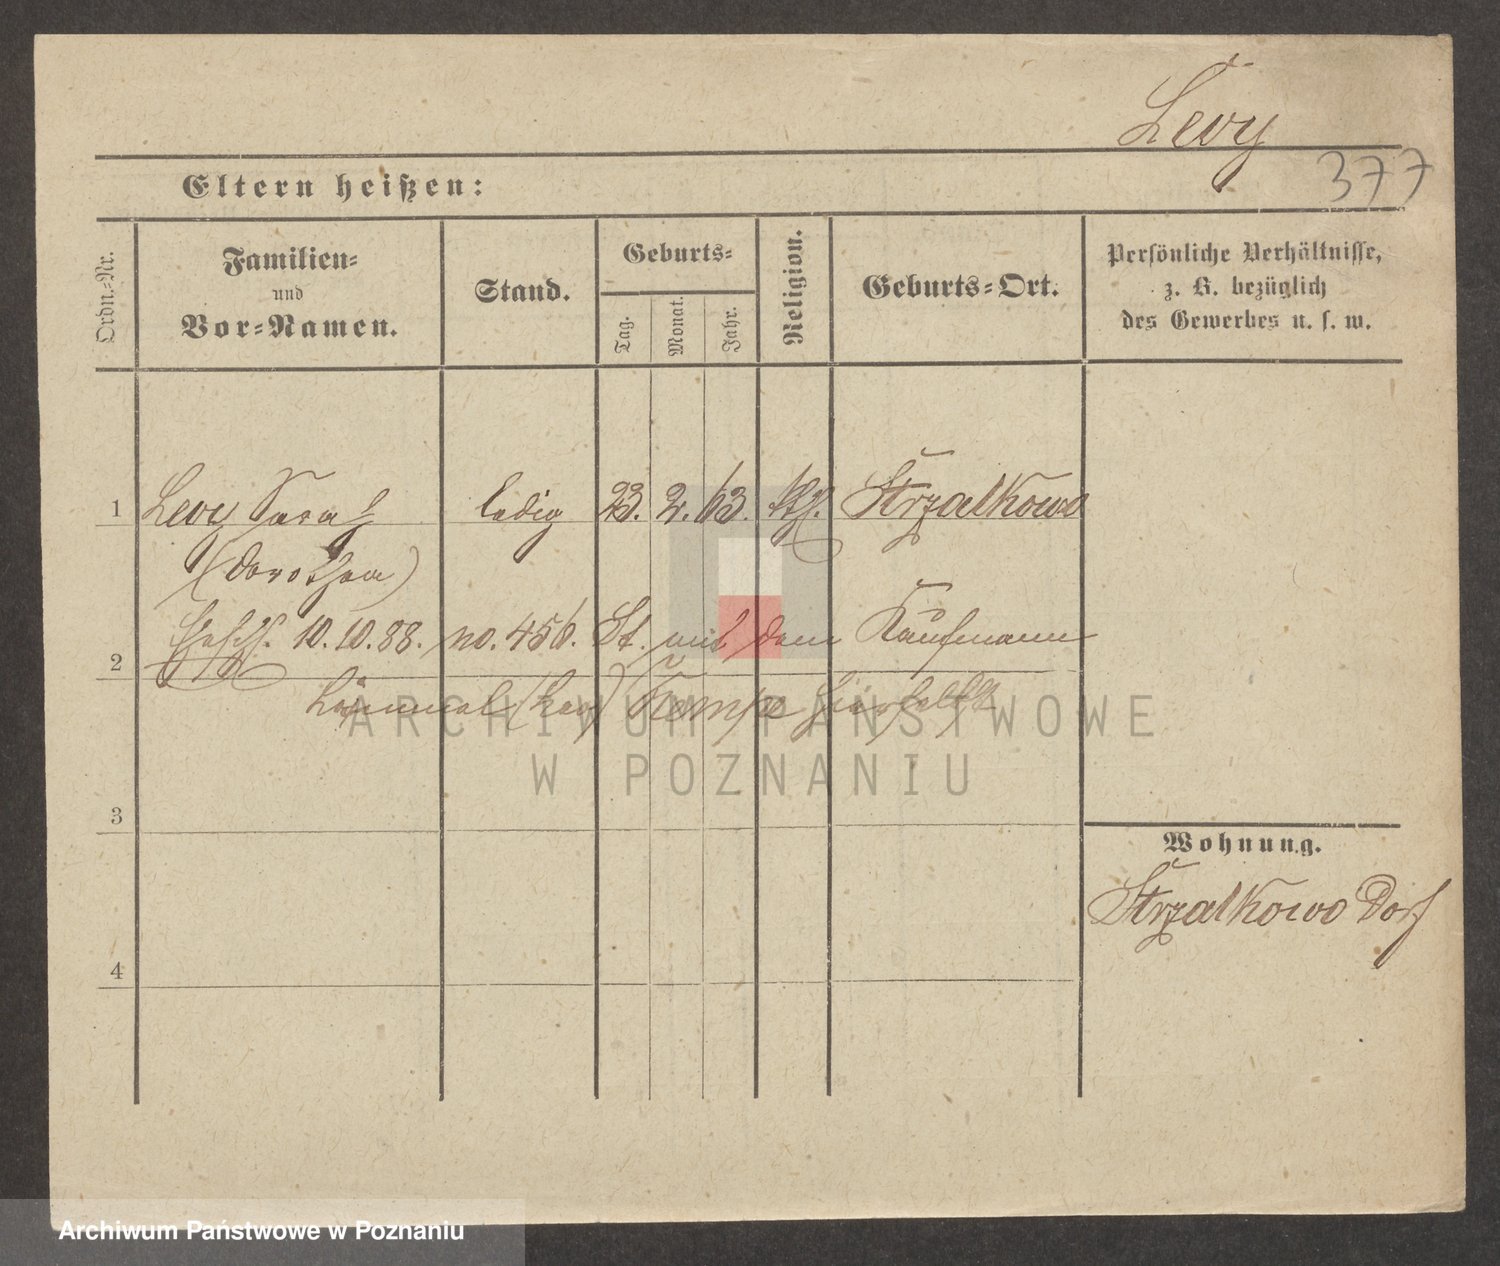 Levy
377
Eltern heißen:
Ordn.-Nr.
Familien-
und
Vor-Namen.
Stand.
Geburts-
Tag.
Monat.
Jahr.
Religion.
Geburts-Ort.
Persönliche Verhältnisse,
z. B. bezüglich
des Gewerbes u. s. w.
1 Levy Sarah ledig 23. 2. 63. Strzalkowo
(Dorothea)
2 10.10.88. no. 456. St. mit dem Kaufmann
(Leo) Kempe hierselbst
3
Wohnung.
Strzalkowo Dorf
4
ARCHIWUM PAŃSTWOWE
W POZNANIU
Archiwum Państwowe w Poznaniu